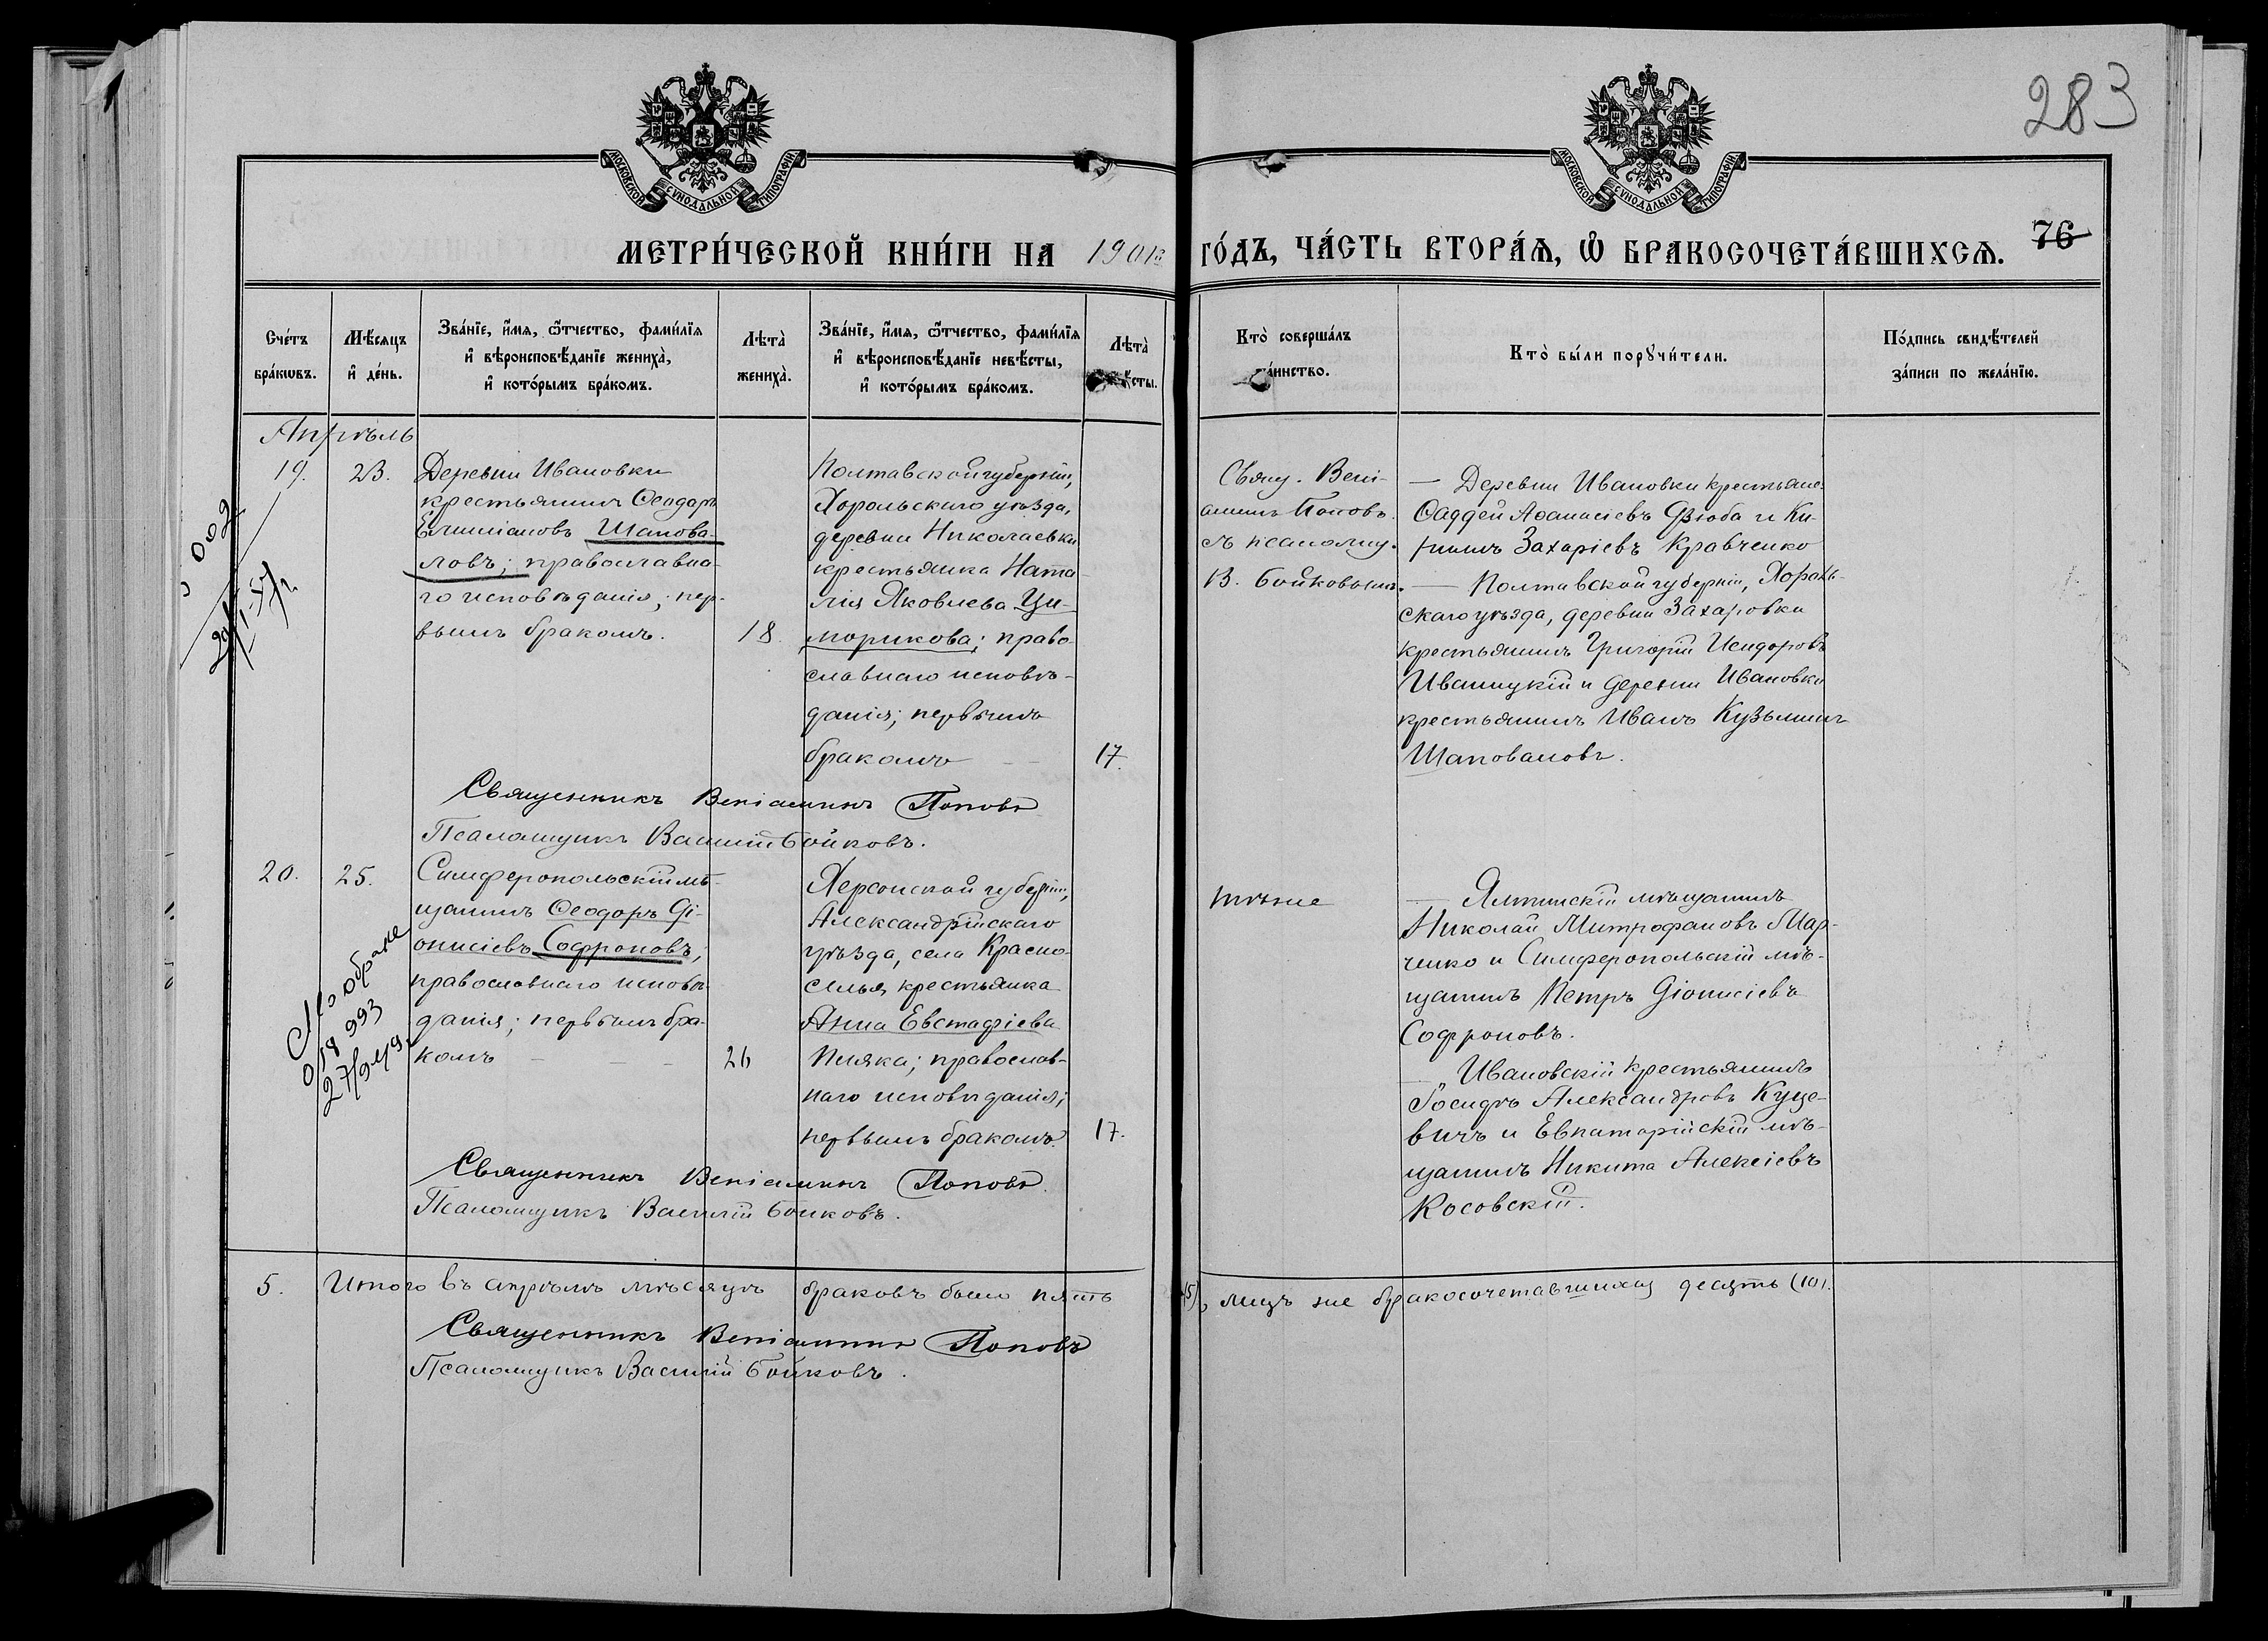 283
МОСКОВСКОЙ СѴНОДАЛЬНОЙ ТИПОГРАФІИ
МОСКОВСКОЙ СѴНОДАЛЬНОЙ ТИПОГРАФІИ
МЕТРИ́ЧЕСКОЙ КНИ́ГИ НА 1901й ГО́ДЪ, ЧА́СТЬ ВТОРА́Я, Ѽ БРАКОСОЧЕТА́ВШИХСЯ. 76
Сче́тъ
бра́кѡвъ.
Мѣ́сяцъ
и҆ де́нь.
Зва́нїе, и҆́мя, ѻ҆́тчество, фами́лїя
и҆ вѣроисповѣ́данїе жениха̀,
и҆ кото́рымъ бра́комъ.
Лѣта̀
жениха̀.
Зва́нїе, и҆́мя, ѻ҆́тчество, фами́лїя
и҆ вѣроисповѣ́данїе невѣ́сты,
и҆ кото́рымъ бра́комъ.
Лѣта̀
ѣ́сты.
Кто̀ соверша́лъ
та́инство.
Кто̀ бы́ли порꙋчи́тели.
По́дпись свидѣ́телей
за́писи по жела́нїю.
Апрѣль
19.
23.
Деревни Ивановки
крестьянинъ Ѳеодоръ
Емиліановъ Шапова-
ловъ; православна-
го исповѣданія; пер-
вымъ бракомъ.
18.
Полтавской губерніи,
Хорольскаго уѣзда,
деревни Николаевки
крестьянка Ната-
лія Яковлева Ци-
морикова; право-
славнаго исповѣ-
данія; первымъ
бракомъ
17.
Свящ. Вені-
аминъ Поповъ
съ псаломщ.
В. Бойковымъ.
— Деревни Ивановки крестьяне:
Ѳаддей Аѳанасіевъ Дзюба и Ки-
риллъ Захаріевъ Кравченко
— Полтавской губерніи, Хороль-
скаго уѣзда, деревни Захаровки
крестьянинъ Григорій Исидоровъ
Иваницкій и деревни Ивановки
крестьянинъ Иванъ Кузьминъ
Шаповаловъ.
Священникъ Веніаминъ Поповъ
Псаломщикъ Василій Бойковъ.
20.
25.
Симферопольскій мѣ-
щанинъ Ѳеодоръ Ді-
онисіевъ Софроновъ,
православнаго исповѣ-
данія; первымъ бра-
комъ
26
Херсонской губерніи,
Александрійскаго
уѣзда, села Красно-
селья крестьянка
Анна Евстафіева
Пляка; православ-
наго исповѣданія;
первымъ бракомъ.
17.
тѣже
— Ялтинскій мѣщанинъ
Николай Митрофановъ Мар-
ченко и Симферопольскій мѣ-
щанинъ Петръ Діонисіевъ
Софроновъ.
— Ивановскій крестьянинъ
Іосифъ Александровъ Куце-
вичъ и Евпаторійскій мѣ-
щанинъ Никита Алексіевъ
Косовскій.
Священникъ Веніаминъ Поповъ
Псаломщикъ Василій Бойковъ.
5. Итого въ апрѣлѣ мѣсяцѣ браковъ было пять (5), лицъ же бракосочетавшихся десять (10).
Священникъ Веніаминъ Поповъ
Псаломщикъ Василій Бойковъ.